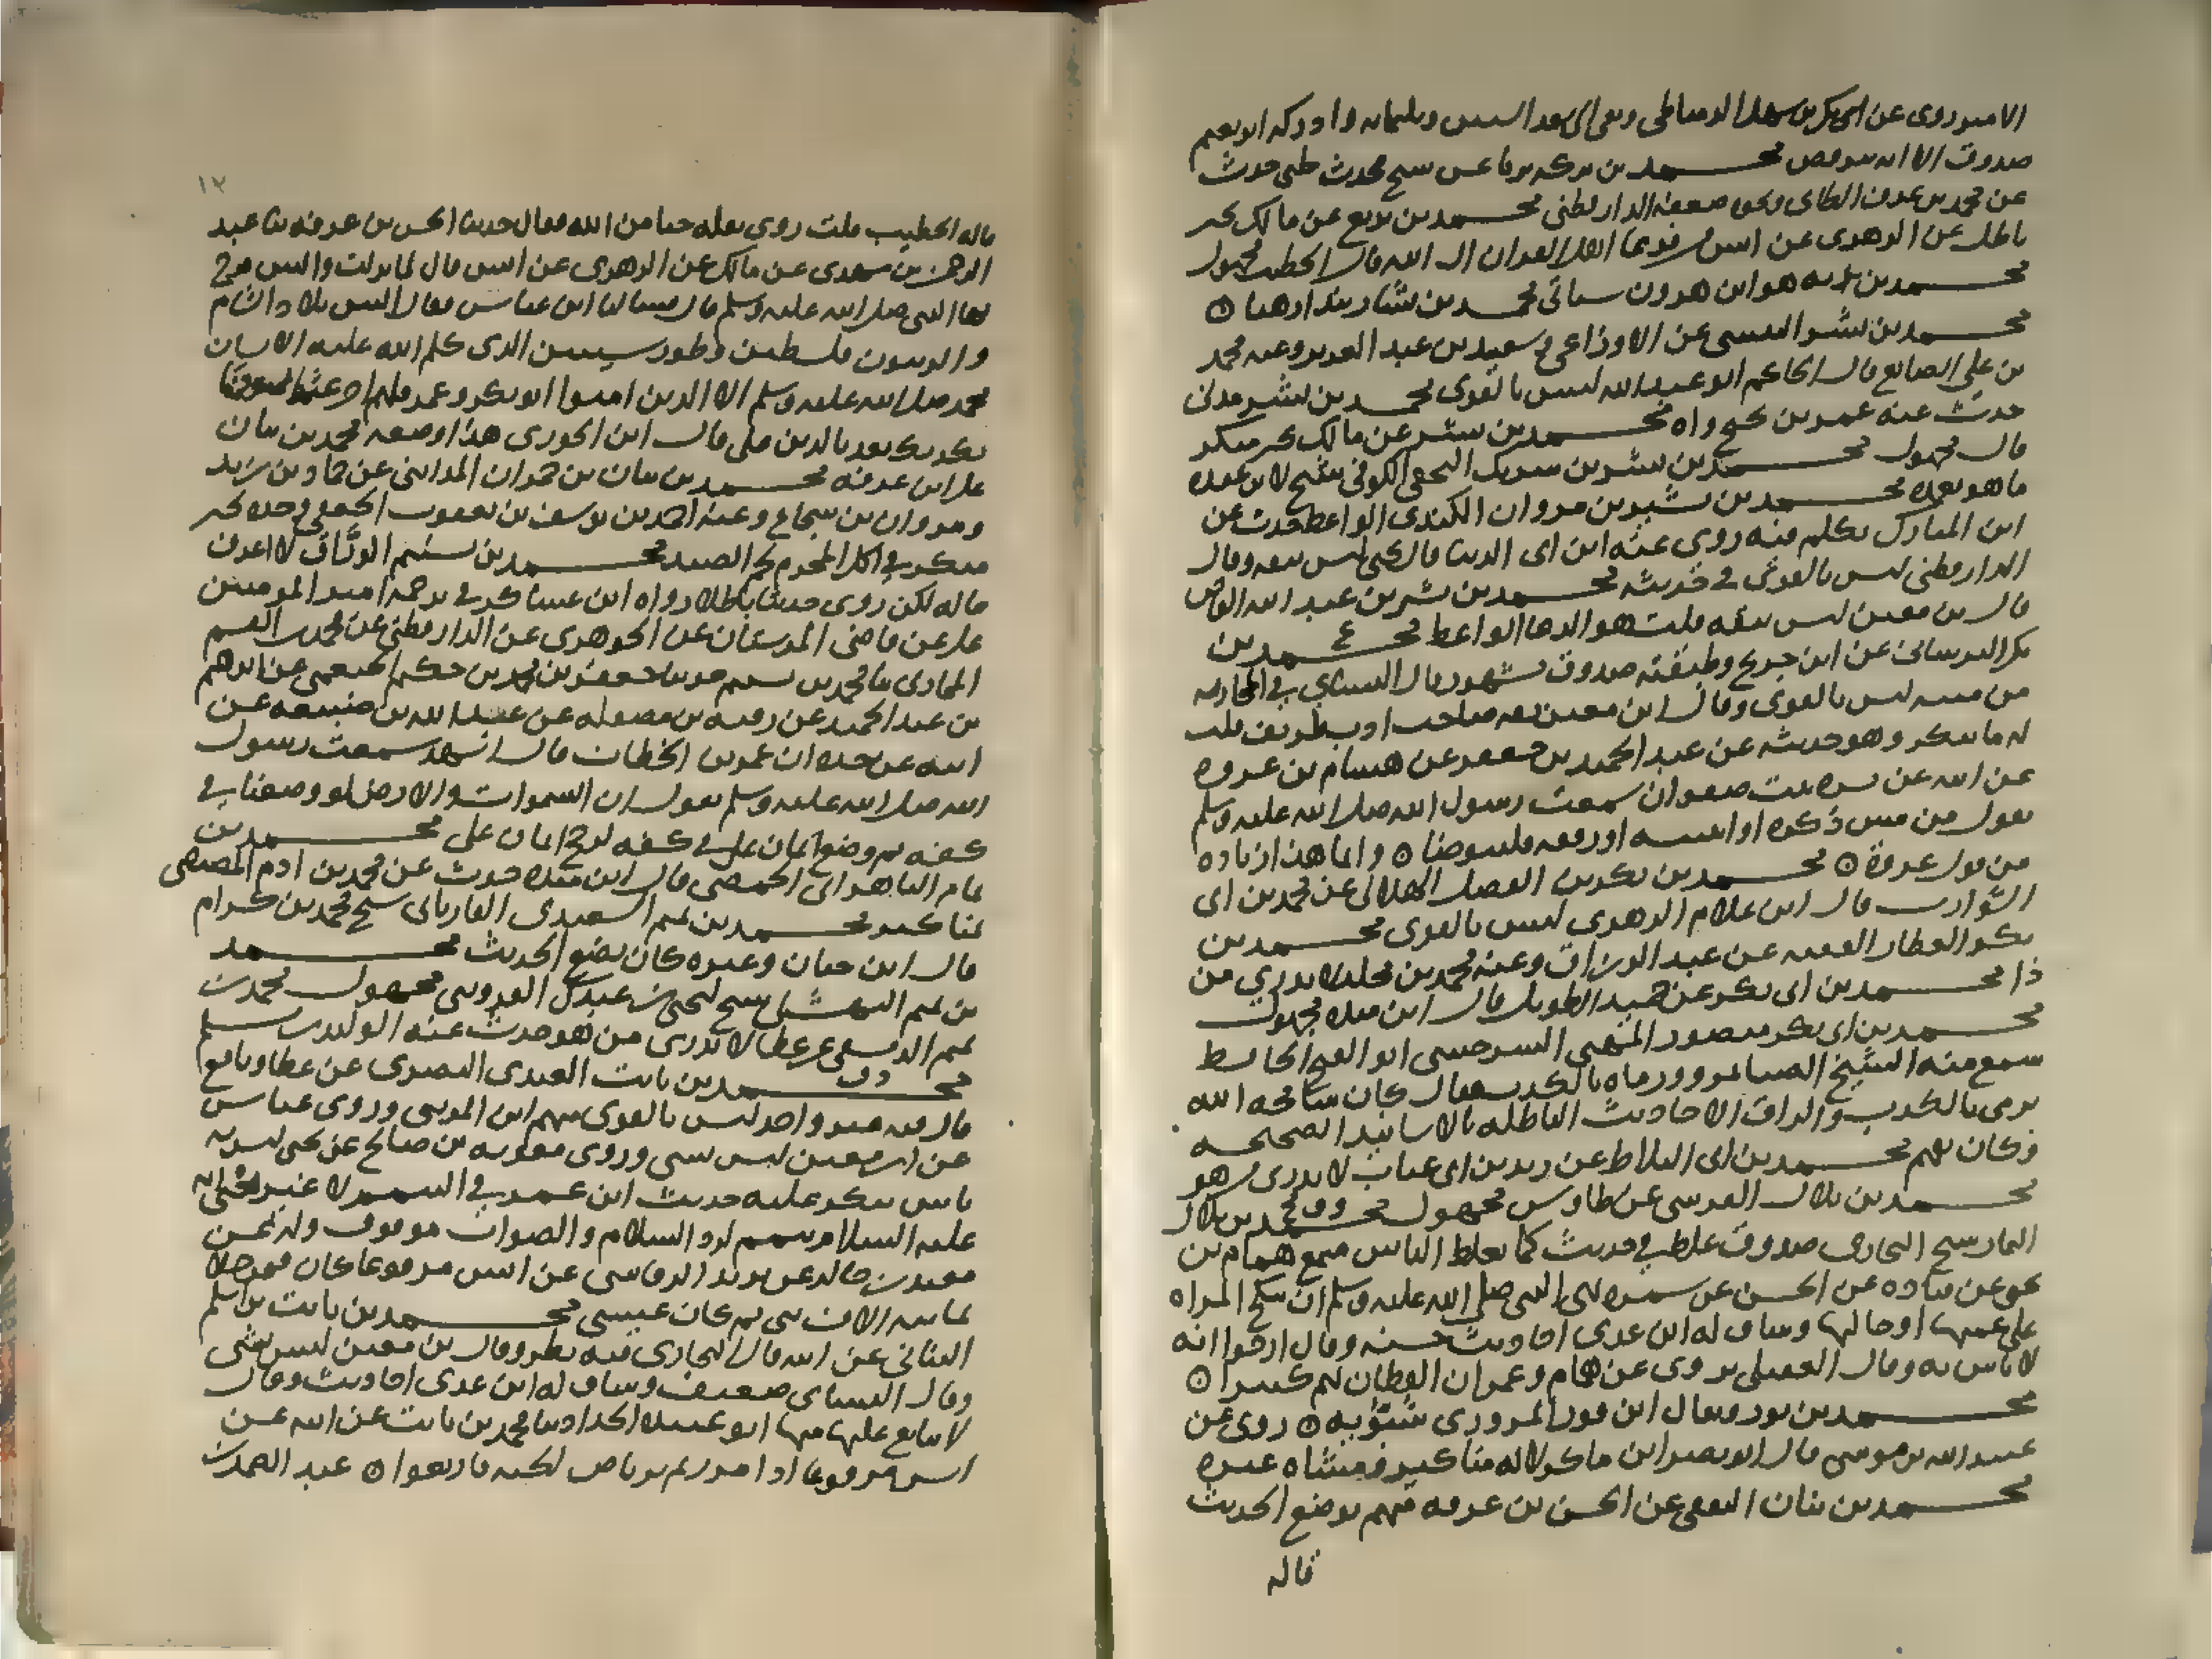 الامير روى عن ابي بكر بن سهل الدمياطي وبقي الى بعد الستين وثلثمائة وادركه ابو نعيم
صدوق الا انه محمد بن بركة برداعس شيخ محدث حلبي حدث
عن محمد بن عوف الطائي ونحوه ضعفه الدارقطني محمد بن بزيع عن مالك بخبر
باطل عن الزهري عن انس مرفوعا اهل القران ال الله قال الخطيب مجهول
محمد بن بزيه هو ابن هرون سياتي محمد بن بشار بندار هنا ۞
محمد بن بشر التنيسي عن الاوزاعي وسعيد بن عبد العزيز وعنه محمد
بن علي الصايغ قال الحاكم ابو عبد الله ليس بالقوي محمد بن بشر مدني
حدث عنه عمر بن نجيح واه محمد بن بشر عن مالك بخبر منكر
قال مجهول محمد بن بشر بن شريك النخعي الكوفي شيخ لابن عقدة
ما هو بعمدة محمد بن بشير بن مروان الكندي الواعظ حدث عن
ابن المبارك تكلم فيه روى عنه ابن ابي الدنيا قال يحيى ليس بثقة وقال
الدارقطني ليس بالقوي في حديثه محمد بن بشير بن عبد الله القاص
قال بن معين ليس بثقة قلت هو الدعا الواعظ ع محمد بن
بكر البرساني عن ابن جريج وطبقته صدوق مشهور قال النسائي في المحاربة
من سننه ليس بالقوي وقال ابن معين ثقة صاحب ادب ظريف قلت
له ما ينكر وهو حديثه عن عبد الحميد بن جعفر عن هشام بن عروة
عن ابيه عن بسرة بنت صفوان سمعت رسول الله صلى الله عليه وسلم
يقول من مس ذكره او انثييه او رفغه فليتوضا ۞ وانما هذا زيادة
من قول عروة ۞ محمد بن بكر بن الفضل الهلالي عن محمد بن ابي
الشوارب قال ابن غلام الزهري ليس بالقوي محمد بن
بكر العطار الفقيه عن عبد الرزاق وعنه محمد بن مخلد لا يدري من
ذا محمد بن ابي بكر عن حميد الطويل قال ابن منده مجهول
محمد بن ابي بكر منصور المنهى السرخسي ابو الفتح الحافظ
سمع منه الشيخ الضيا بمرو ورماه بالكذب فقال كان سامحه الله
يرمى بالكذب والزاق الاحاديث الباطلة بالاسانيد الصحيحة
وكان يتهم محمد بن ابي البلاط عن زيد بن ابي عتاب لا يدرى من هو
محمد بن بلال القرشي عن طاوس مجهول د ق محمد بن بلال
التمار شيخ البخاري صدوق غلط في حديث كما يغلط الناس سمع همام بن
يحيى عن قتادة عن الحسن عن سمرة نهى النبي صلى الله عليه وسلم ان تنكح المراة
على عمتها او خالتها وساق له ابن عدي احاديث حسنة وقال ارجوا انه
لا باس به وقال العقيلي يروي عن همام وعمران القطان يهم كثيرا ۞
محمد بن بور ويقال ابن فور المروزي شتويه ۞ روى عن
عبيد الله بن موسى قال ابو نصر ابن ماكولا له مناكير ومشاه غيره
محمد بن بنان الثقفي عن الحسن بن عرفة متهم بوضع الحديث
قاله
١٢
قاله الخطيب قلت روى بقلة حيا من الله فقال حدثنا الحسن بن عرفة ثنا عبد
الرحمن بن مهدي عن مالك عن الزهري عن انس قال لما نزلت والتين فرح
بها النبي صلى الله عليه وسلم قال فسالنا ابن عباس فقال التين بلاد الشام
والزيتون فلسطين وطور سينين الذي كلم الله عليه الانسان
محمد صلى الله عليه وسلم الا الذين امنوا ابو بكر وعمر فلهم اجر عثمان
يكذبك بعد بالدين علي قال ابن الجوزي هذا وضعه محمد بن بنان
على ابن عرفة محمد بن بيان بن حمران المدايني عن حماد بن زيد
ومروان بن شجاع وعنه احمد بن يوسف بن يعقوب الجعفي وجده بخبر
منكر في اكل المحرم لحم الصيد محمد بن تسنيم الوراق لا اعرف
حاله لكن روى حديثا باطلا رواه ابن عساكر في ترجمة امير المومنين
علي عن قاضي المرستان عن الجوهري عن الدارقطني عن محمد بن القسم
المحاربي ثنا محمد بن تسنيم ثنا جعفر بن محمد بن حكيم الخثعمي عن ابراهيم
بن عبد الحميد عن رقبة بن مصقلة عن عبد الله بن ضبيعة عن
ابيه عن جده ان عمر بن الخطاب قال اشهد سمعت رسول
الله صلى الله عليه وسلم يقول ان السموات والارض لو وضعتا في
كفة ثم وضع ايمان علي في كفة لرجح ايمان علي محمد بن
تمام البهراني الحمصي قال ابن منده حدث عن محمد بن ادم المصيصي
بمناكير محمد بن تميم السعدي الفاريابي شيخ محمد بن كرام
قال ابن حبان وغيره كان يضع الحديث محمد
بن تميم النهشلي شيخ ليحيى بن عبدك القزويني مجهول محمد بن
تميم الدمشقي عن عطا لا يدرى من هو حدث عنه الوليد بن مسلم
د ق محمد بن ثابت العبدي البصري عن عطا ونافع
قال فيه غير واحد ليس بالقوي منهم ابن المديني وروى عباس
عن ابن معين ليس بشي وروى معوية بن صالح عن يحيى ليس به
باس ينكر عليه حديث ابن عمر في التيمم لا غير يعني انه
عليه السلام تيمم لرد السلام والصواب موقوف وله عن
معبد بن خالد عن يزيد الرقاشي عن انس مرفوعا كان بين
ثمانية الاف نبي ثم كان عيسى محمد بن ثابت بن اسلم
البناني عن ابيه قال البخاري فيه نظر وقال بن معين ليس بشي
وقال النسائي ضعيف وساق له ابن عدي احاديث وقال
لا يتابع عليها منها ابو عبيدة الحداد ثنا محمد بن ثابت عن ابيه عن
انس مرفوعا اذا مررتم برياض الجنة فارتعوا ۞ عبد الصمد بن